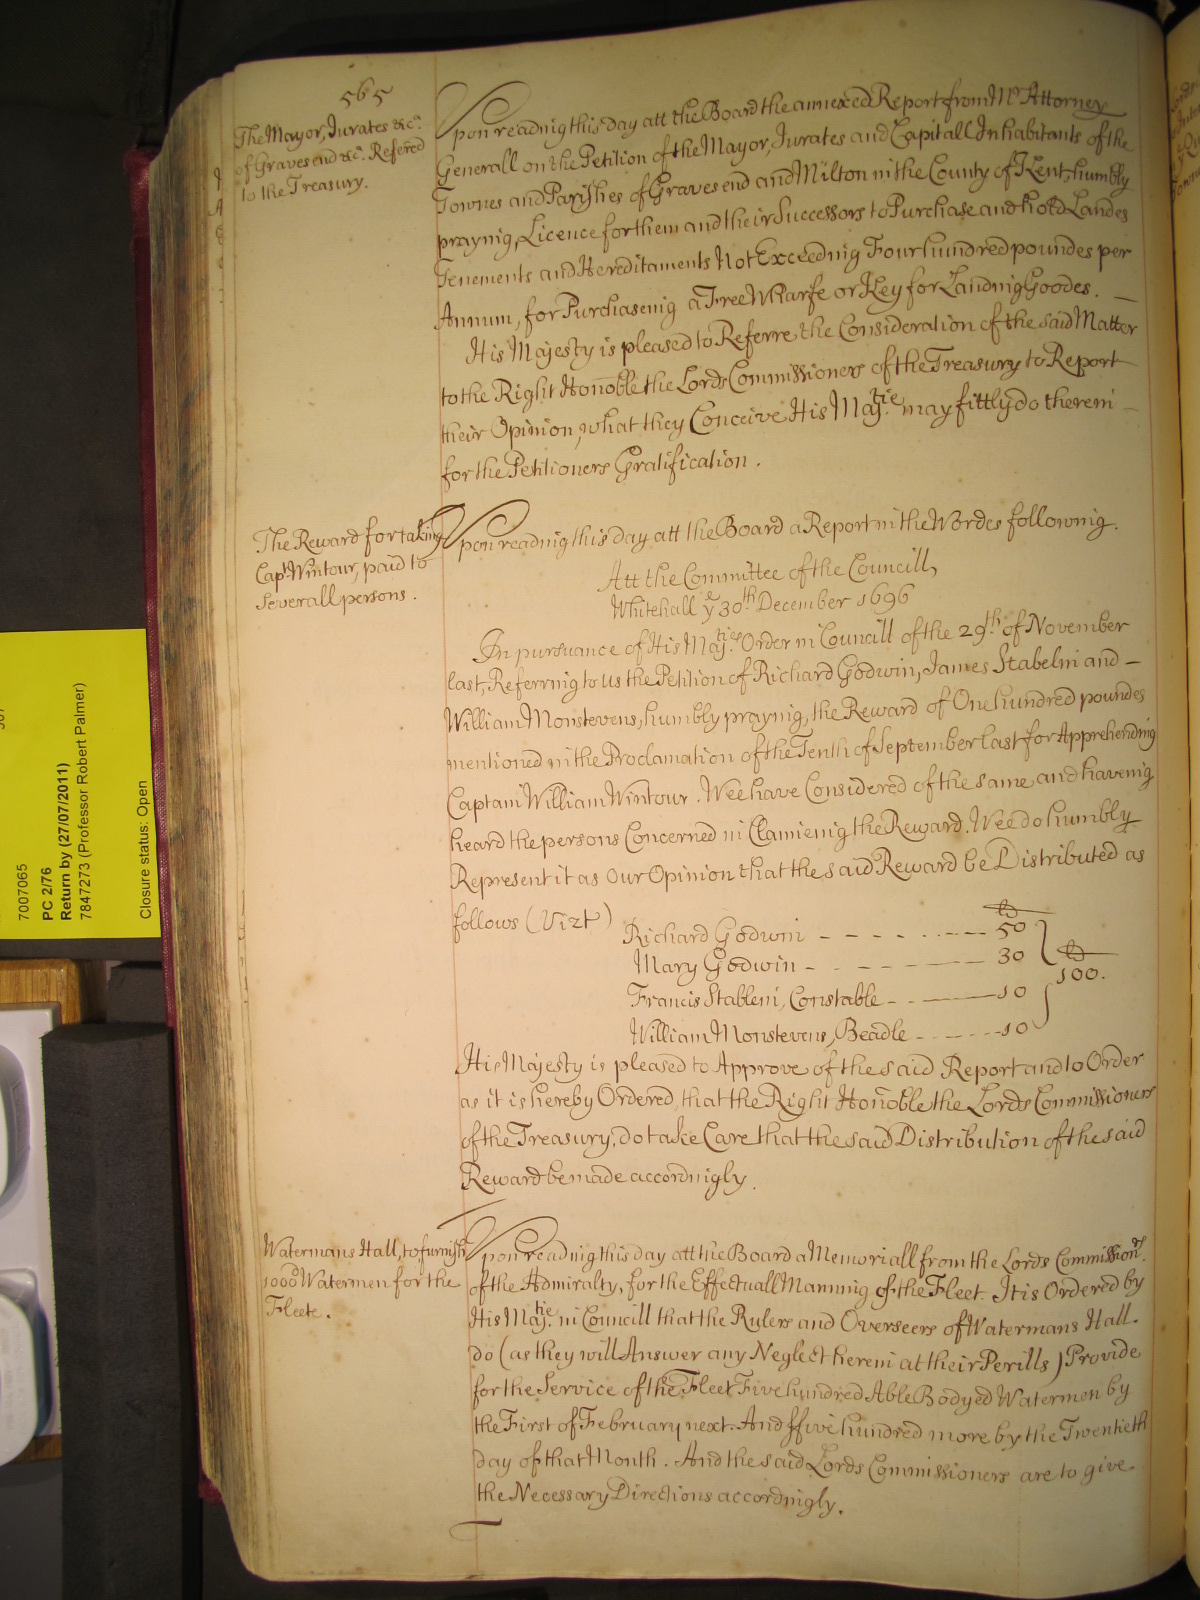 565
The Mayor, Jurates &c:ª
of Gravesend &c:ª Refered
to the Treasury.
Upon readnig this day att the Board the annexed Report from Mr Attorney
Generall on the Petition of the Mayor, Jurates and Capitall Inhabitants of the
Townes and Parishes of Gravesend and Milton in the County of Kent, humbly
praynig, Licence for them and their Successors to Purchase and hold Landes
Tenements and Hereditaments Not Exceednig Four hundred poundes per
Annum, for Purchaseing a Free Wharfe or Key for Landnig Goodes. —
His Majesty is pleased to Referre the Consideration of the said Matter
to the Right Honoble the Lords Commissioners of the Treasury to Report
their Opinion, what they Conceive His Maj:tie may fittly do therein —
for the Petitioners Gratification .
The Reward for taking
Capt Wintour, paid to
severall persons .
Upon readnig this day att the Board a Report in the Wordes follownig.
Att the Committee of the Councill,
Whitehall ye 30th December 1696
In pursuance of His Maj:ties Order in Councill of the 29th of November
last, Referrnig to Us the Petition of Richard Godwin, James Stabelin and —
William Monstevens, humbly praynig, the Reward of One hundred poundes
mentioned in the Proclamation of the Tenth of September last for Apprehending
Captain William Wintour . Wee have Considered of the same and haveing
heard the persons Concerned in Claimeing the Reward. Wee do humbly
Represent it as Our Opinion that the said Reward be Distributed as
follows (Vizt)
lb
Richard Godwin - - - - - - - 50
Mary Godwin - - - - - - - 30
lb
100.
Francis Stablein, Constable - - - - 10
William Monstevens, Beadle - - - - - 10
His Majesty is pleased to Approve of the said Report and to Order
as it is hereby Ordered, that the Right Honoble the Lords Commissioners
of the Treasury, do take Care that the said Distribution of the said
Reward be made accordnigly.
Watermans Hall, to furnish
1000 Watermen for the
Fleete .
Upon readnig this day att the Board a Memoriall from the Lords Commissionrs
of the Admiralty, for the Effectuall Mannnig of the Fleet. It is Ordered by
His Maj:tie in Councill that the Rulers and Overseers of Watermans Hall .
do (as they will Answer any Neglect therein at their Perills) Provide
for the Service of the Fleet Five hundred Able Bodyed Watermen by
the First of February next. And ffive hundred more by the Twentieth
day of that Month . And the said Lords Commissioners are to give
the Necessary Directions accordnigly.
7007065
PC 2/76
Return by (27/07/2011)
7847273 (Professor Robert Palmer)
Closure status: Open